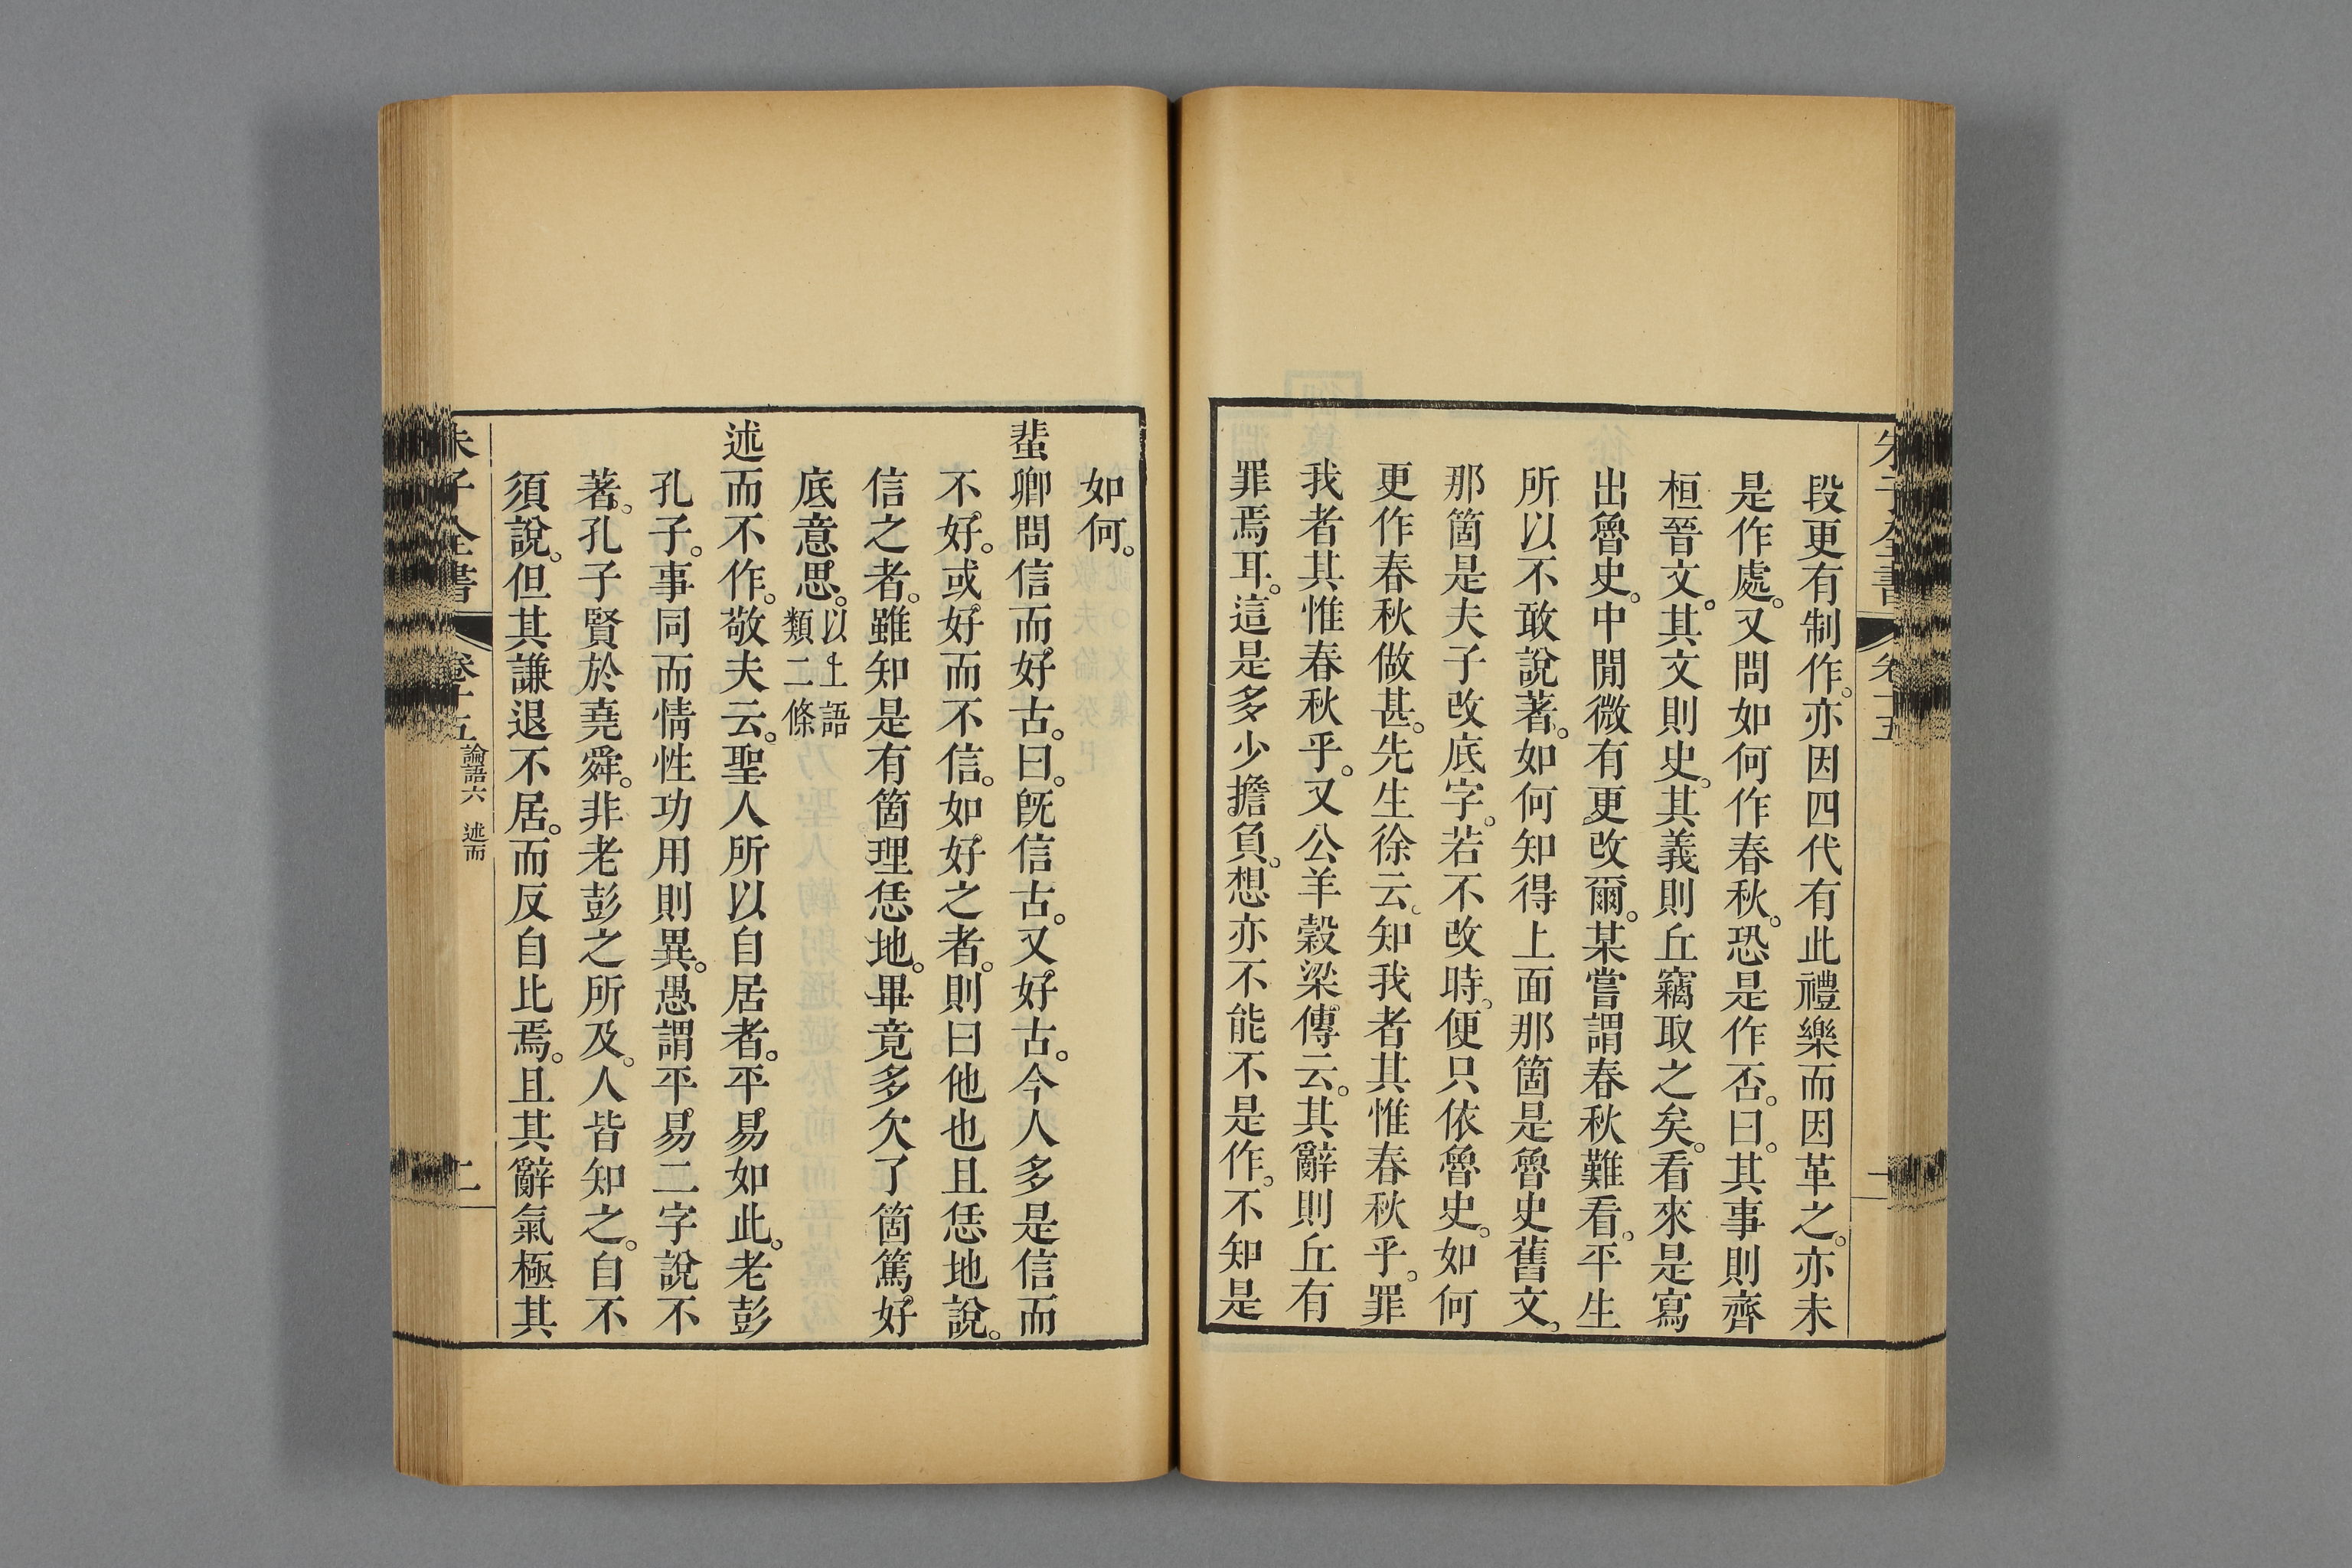 朱子全書 卷十五 一
段更有制作。亦因四代有此禮樂而因革之。亦未
是作處。又問如何作春秋。恐是作否。曰。其事則齊
桓晉文。其文則史。其義則丘竊取之矣。看來是寫
出魯史。中閒微有更改爾。某嘗謂春秋難看。平生
所以不敢說著。如何知得上面那箇是魯史舊文、
那箇是夫子改底字。若不改時。便只依魯史。如何
更作春秋做甚。先生徐云。知我者其惟春秋乎。罪
我者其惟春秋乎。又公羊穀梁傳云。其辭則丘有
罪焉耳。這是多少擔負。想亦不能不是作。不知是
如何。
蜚卿問信而好古。曰。旣信古。又好古。今人多是信而
不好。或好而不信。如好之者。則曰他也且恁地說。
信之者。雖知是有箇理恁地。畢竟多欠了箇篤好
底意思。以上語類二條
述而不作。敬夫云。聖人所以自居者。平易如此。老彭
孔子。事同而情性功用則異。愚謂平易二字說不
著。孔子賢於堯舜。非老彭之所及。人皆知之。自不
須說。但其謙退不居。而反自比焉。且其辭氣極其
朱子全書 卷十五 論語六 述而 二